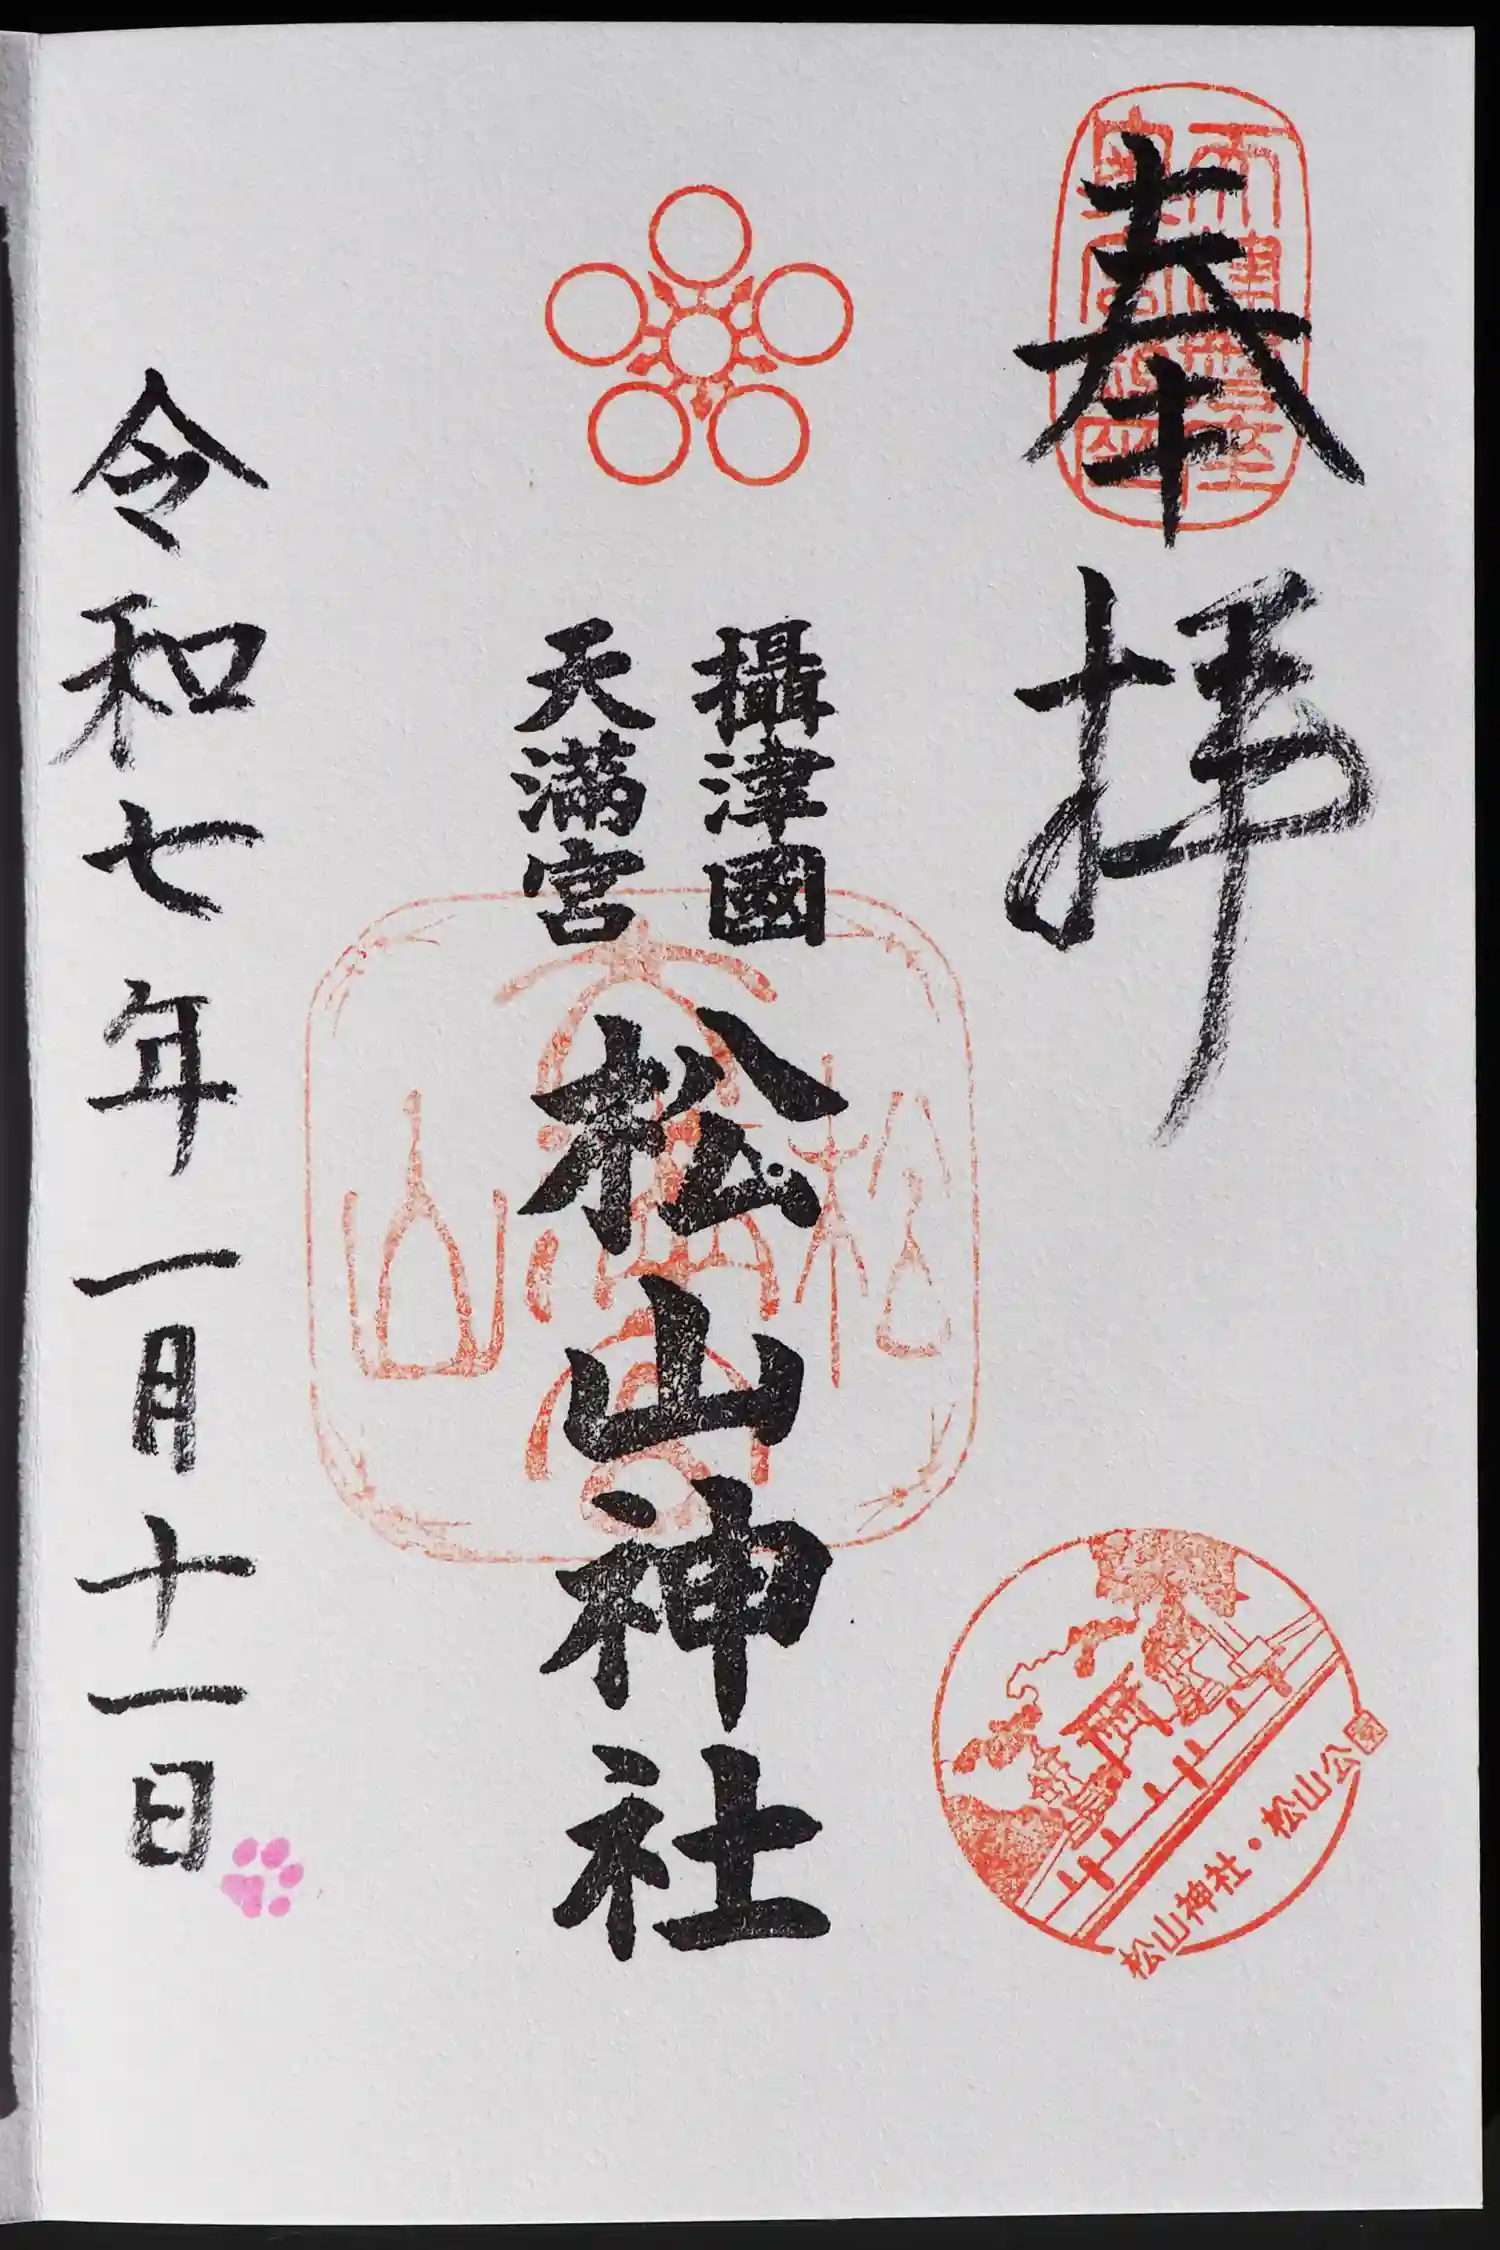 奉拝
攝津國
天満宮
松山神社
令和七年一月十一日
松山神社・松山公園